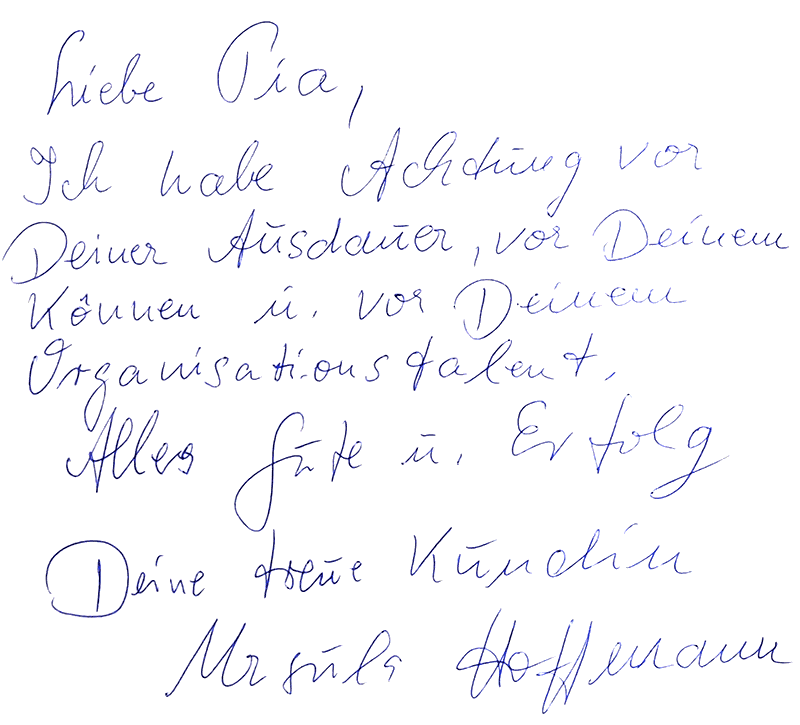 Liebe Pia,
Ich habe Achtung vor
Deiner Ausdauer, vor Deinem
Können u. vor Deinem
Organisationstalent.
Alles Gute u. Erfolg
Deine treue Kundin
Ursula Hoffmann